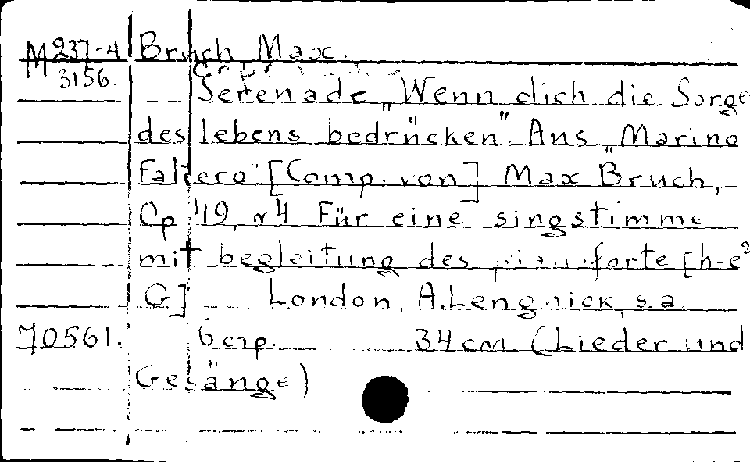 M 237-4 Bruch Max.
3156.
Serenade „Wenn dich die Sorge
des lebens bedrücken". Aus „Marino
Faliero" [Comp. von] Max Bruch,
Op 49, N4 Für eine singstimme
mit begleitung des pianoforte [h-e²
G] London, A.Lengnick, s.a.
70561. 6 стр. 34 cm (Lieder und
Gesänge)